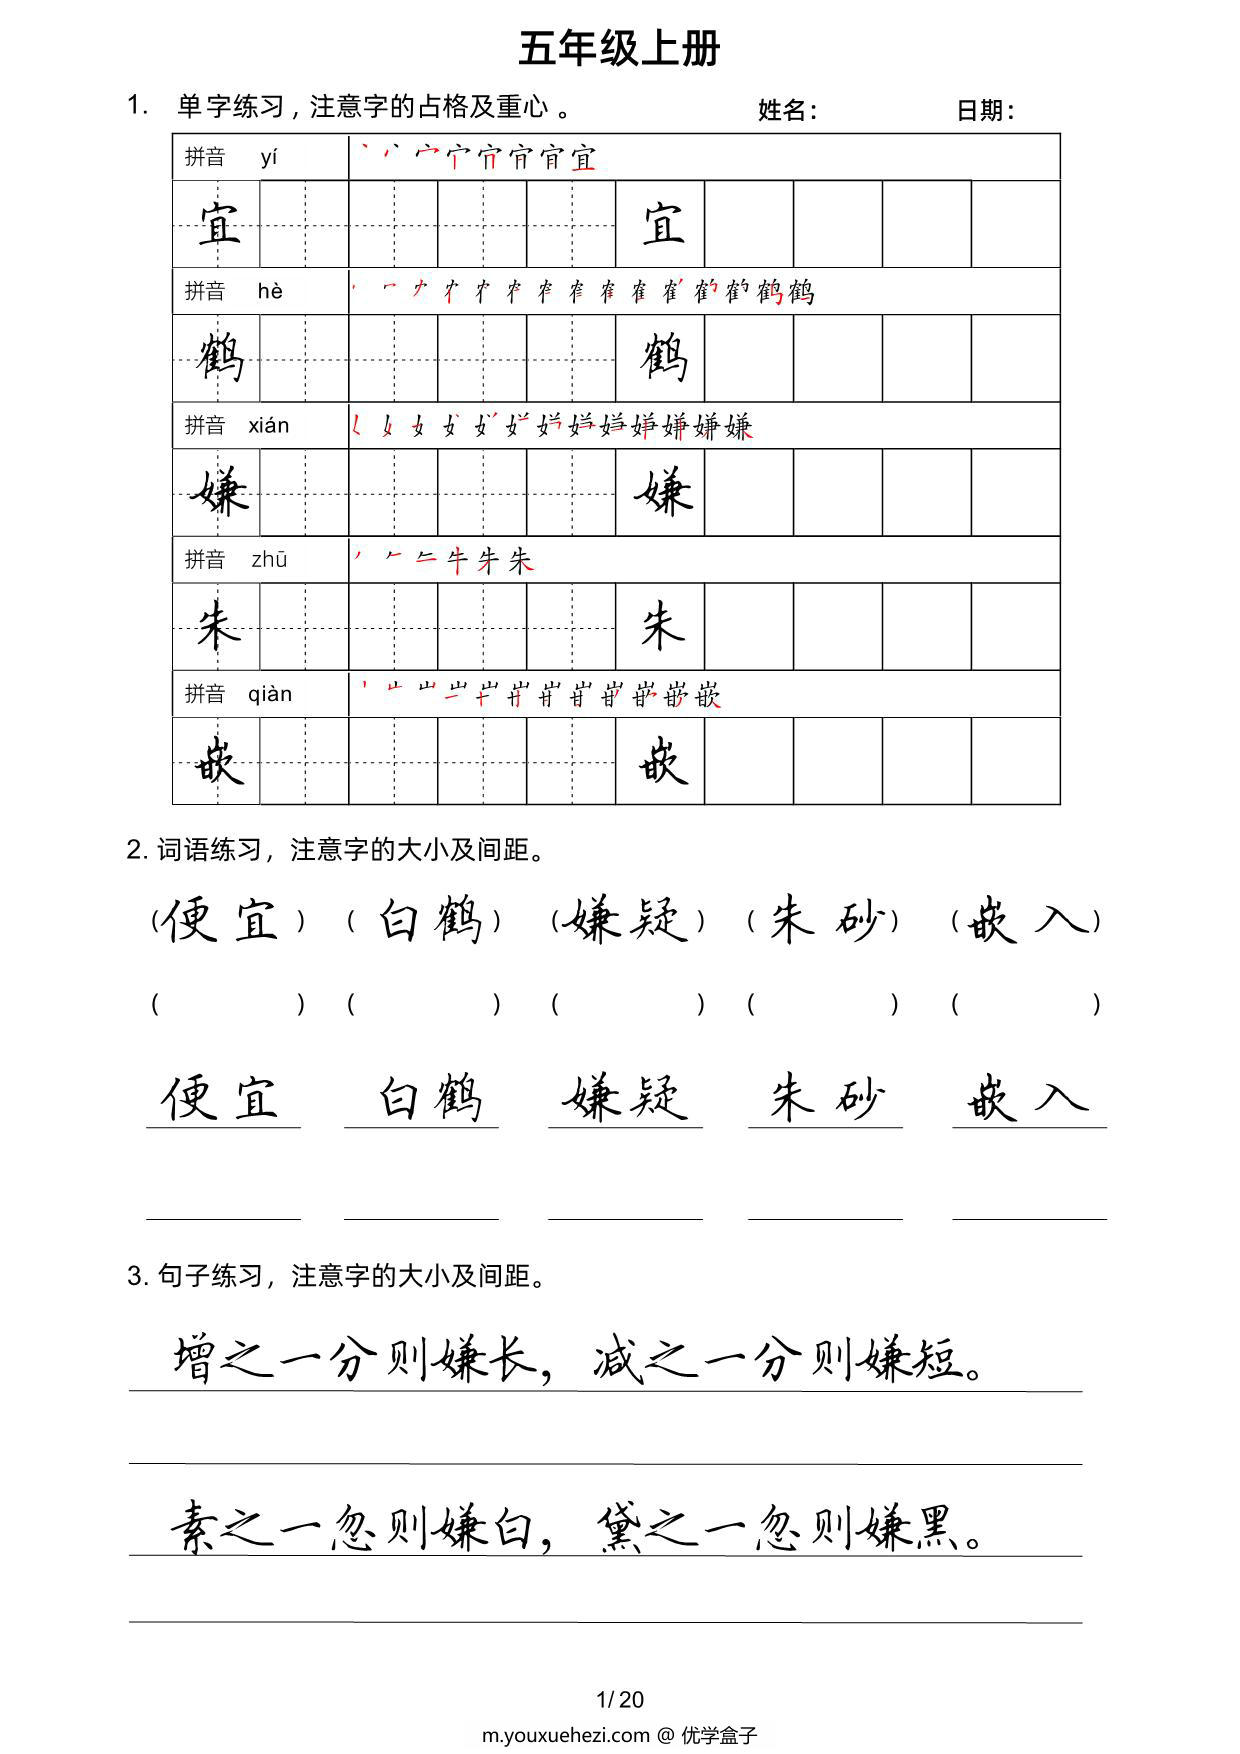 五年级上册
1. 单字练习，注意字的占格及重心。 姓名： 日期：
拼音 yí
宜 宜
拼音 hè
鹤 鹤
拼音 xián
嫌 嫌
拼音 zhū
朱 朱
拼音 qiàn
嵌 嵌
2. 词语练习，注意字的大小及间距。
（便宜）（白鹤）（嫌疑）（朱砂）（嵌入）
（ ）（ ）（ ）（ ）（ ）
便宜 白鹤 嫌疑 朱砂 嵌入
3. 句子练习，注意字的大小及间距。
增之一分则嫌长，减之一分则嫌短。
素之一忽则嫌白，黛之一忽则嫌黑。
1/20
m.youxuehezi.com @ 优学盒子